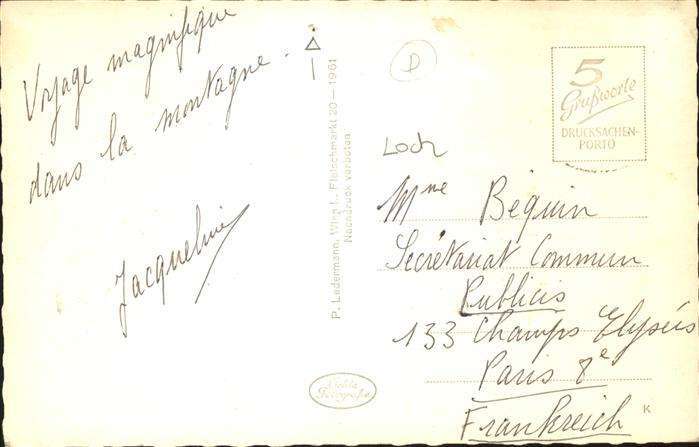 Voyage magnifique
dans la montagne.
Jacqueline
P. Ledermann, Wien I., Fleischmarkt 20 — 1961
Nachdruck verboten
Echte
D
5
Grußworte
DRUCKSACHEN-
PORTO
Loch
Mme Béquin
Secrétariat Commun
Publicis
133 Champs Elysées
Paris 8e
Frankreich
K